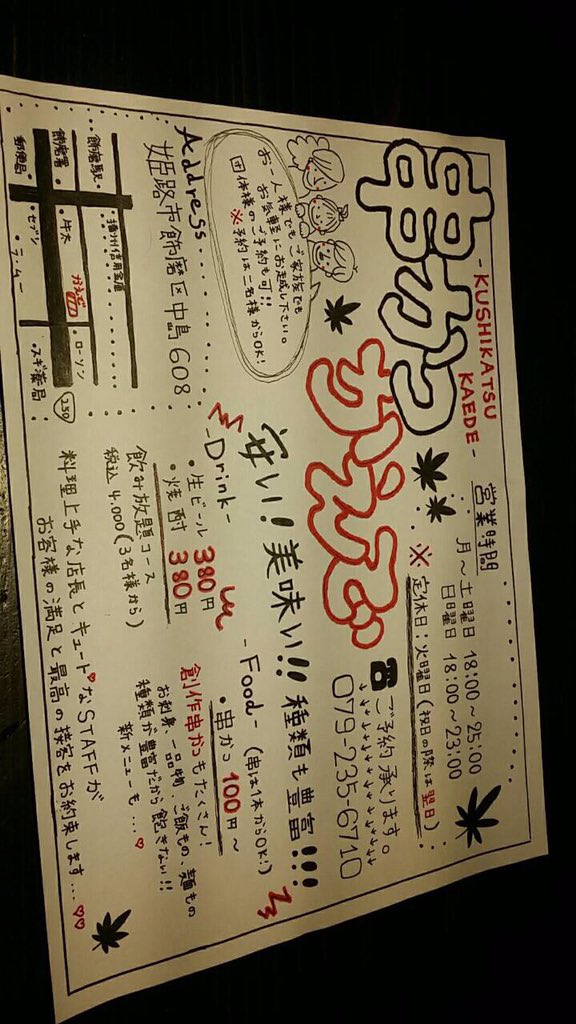 串かつ かえで
- KUSHIKATSU KAEDE -
営業時間
月～土曜日 18:00～25:00
日曜日 18:00～23:00
※定休日：火曜日(祝日の際は翌日)
☎ご予約承ります。
079-235-6710
お一人様でもご家族でも
お気軽にお越し下さい。
団体様のご予約も可!!
※予約は二名様からOK!
安い!美味い!!種類も豊富!!!
Address
姫路市飾磨区中島608
飾磨駅
播州信用金庫
飾磨署
牛太
かえで
ローソン
郵便局
セブン
ラーミー
スギ薬局
250
- Drink -
・生ビール 380円
・焼酎 380円
飲み放題コース
税込4.000(3名様から)
- Food - (串は1本からOK!)
・串かつ 100円～
創作串かつもたくさん!
お刺身、一品物、ご飯もの、麺もの
種類が豊富だから飽きない!!
新メニューも…♡
料理上手な店長とキュート♡なSTAFFが
お客様の満足と最高の接客をお約束します…♡♡